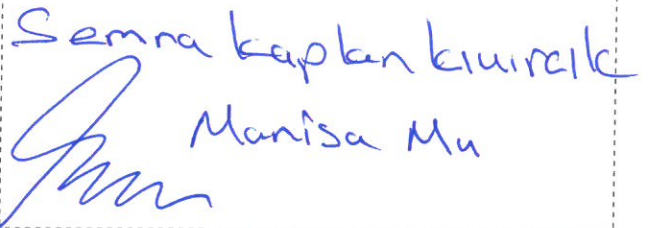 Semra Kaplan Kıvırcık
Manisa Mv